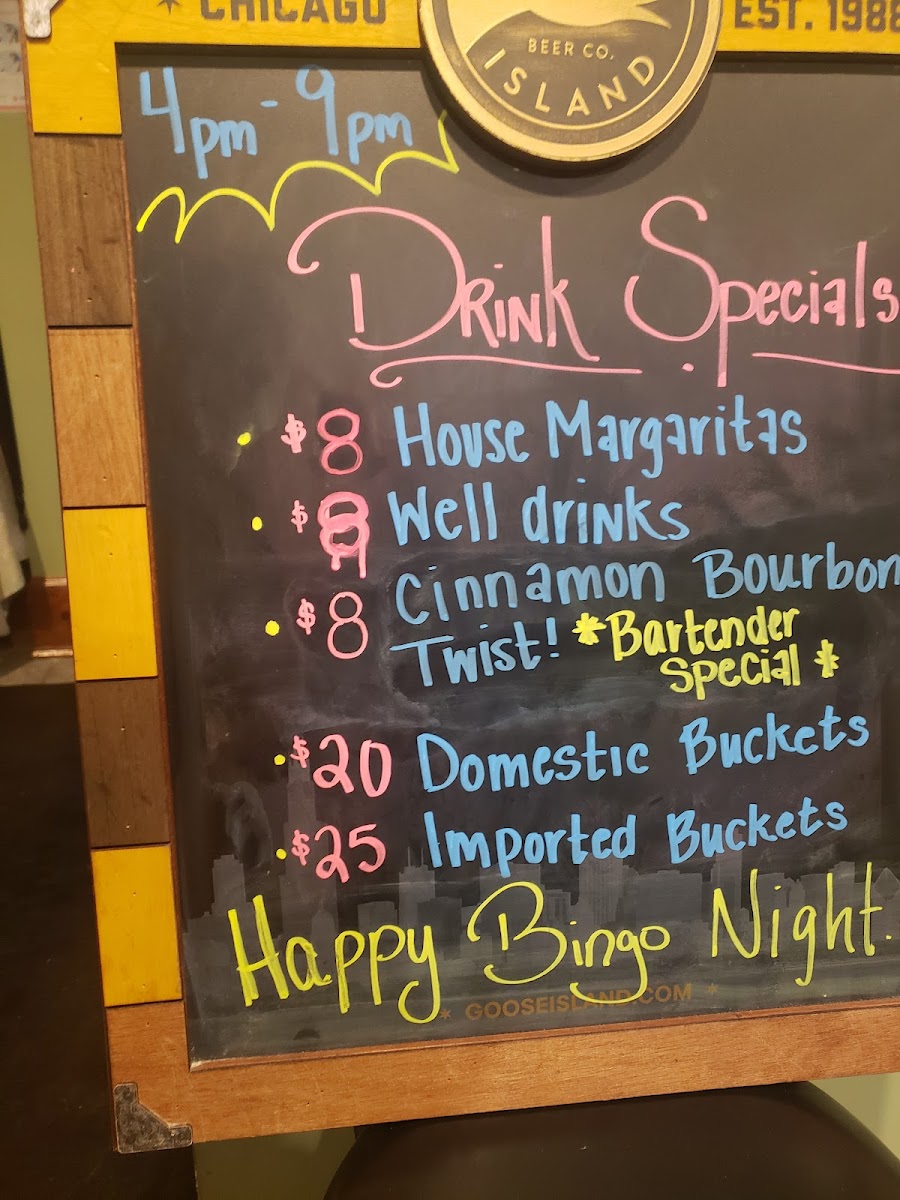 CHICAGO EST. 1988
BEER CO.
ISLAND
4pm - 9pm
Drink Specials
$8 House Margaritas
Well drinks
$8 Cinnamon Bourbon
Twist! *Bartender
Special *
$20 Domestic Buckets
$25 Imported Buckets
Happy Bingo Night.
* GOOSEISLAND.COM *